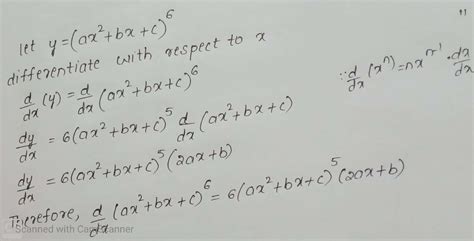 11
let y = (ax² + bx + c)⁶
differentiate with respect to x
d/dx (y) = d/dx (ax² + bx + c)⁶
∵ d/dx (xⁿ) = nxⁿ⁻¹ · dx/dx
dy/dx = 6(ax² + bx + c)⁵ d/dx (ax² + bx + c)
dy/dx = 6(ax² + bx + c)⁵ (2ax + b)
Therefore, d/dx (ax² + bx + c)⁶ = 6(ax² + bx + c)⁵ (2ax + b)
Scanned with CamScanner